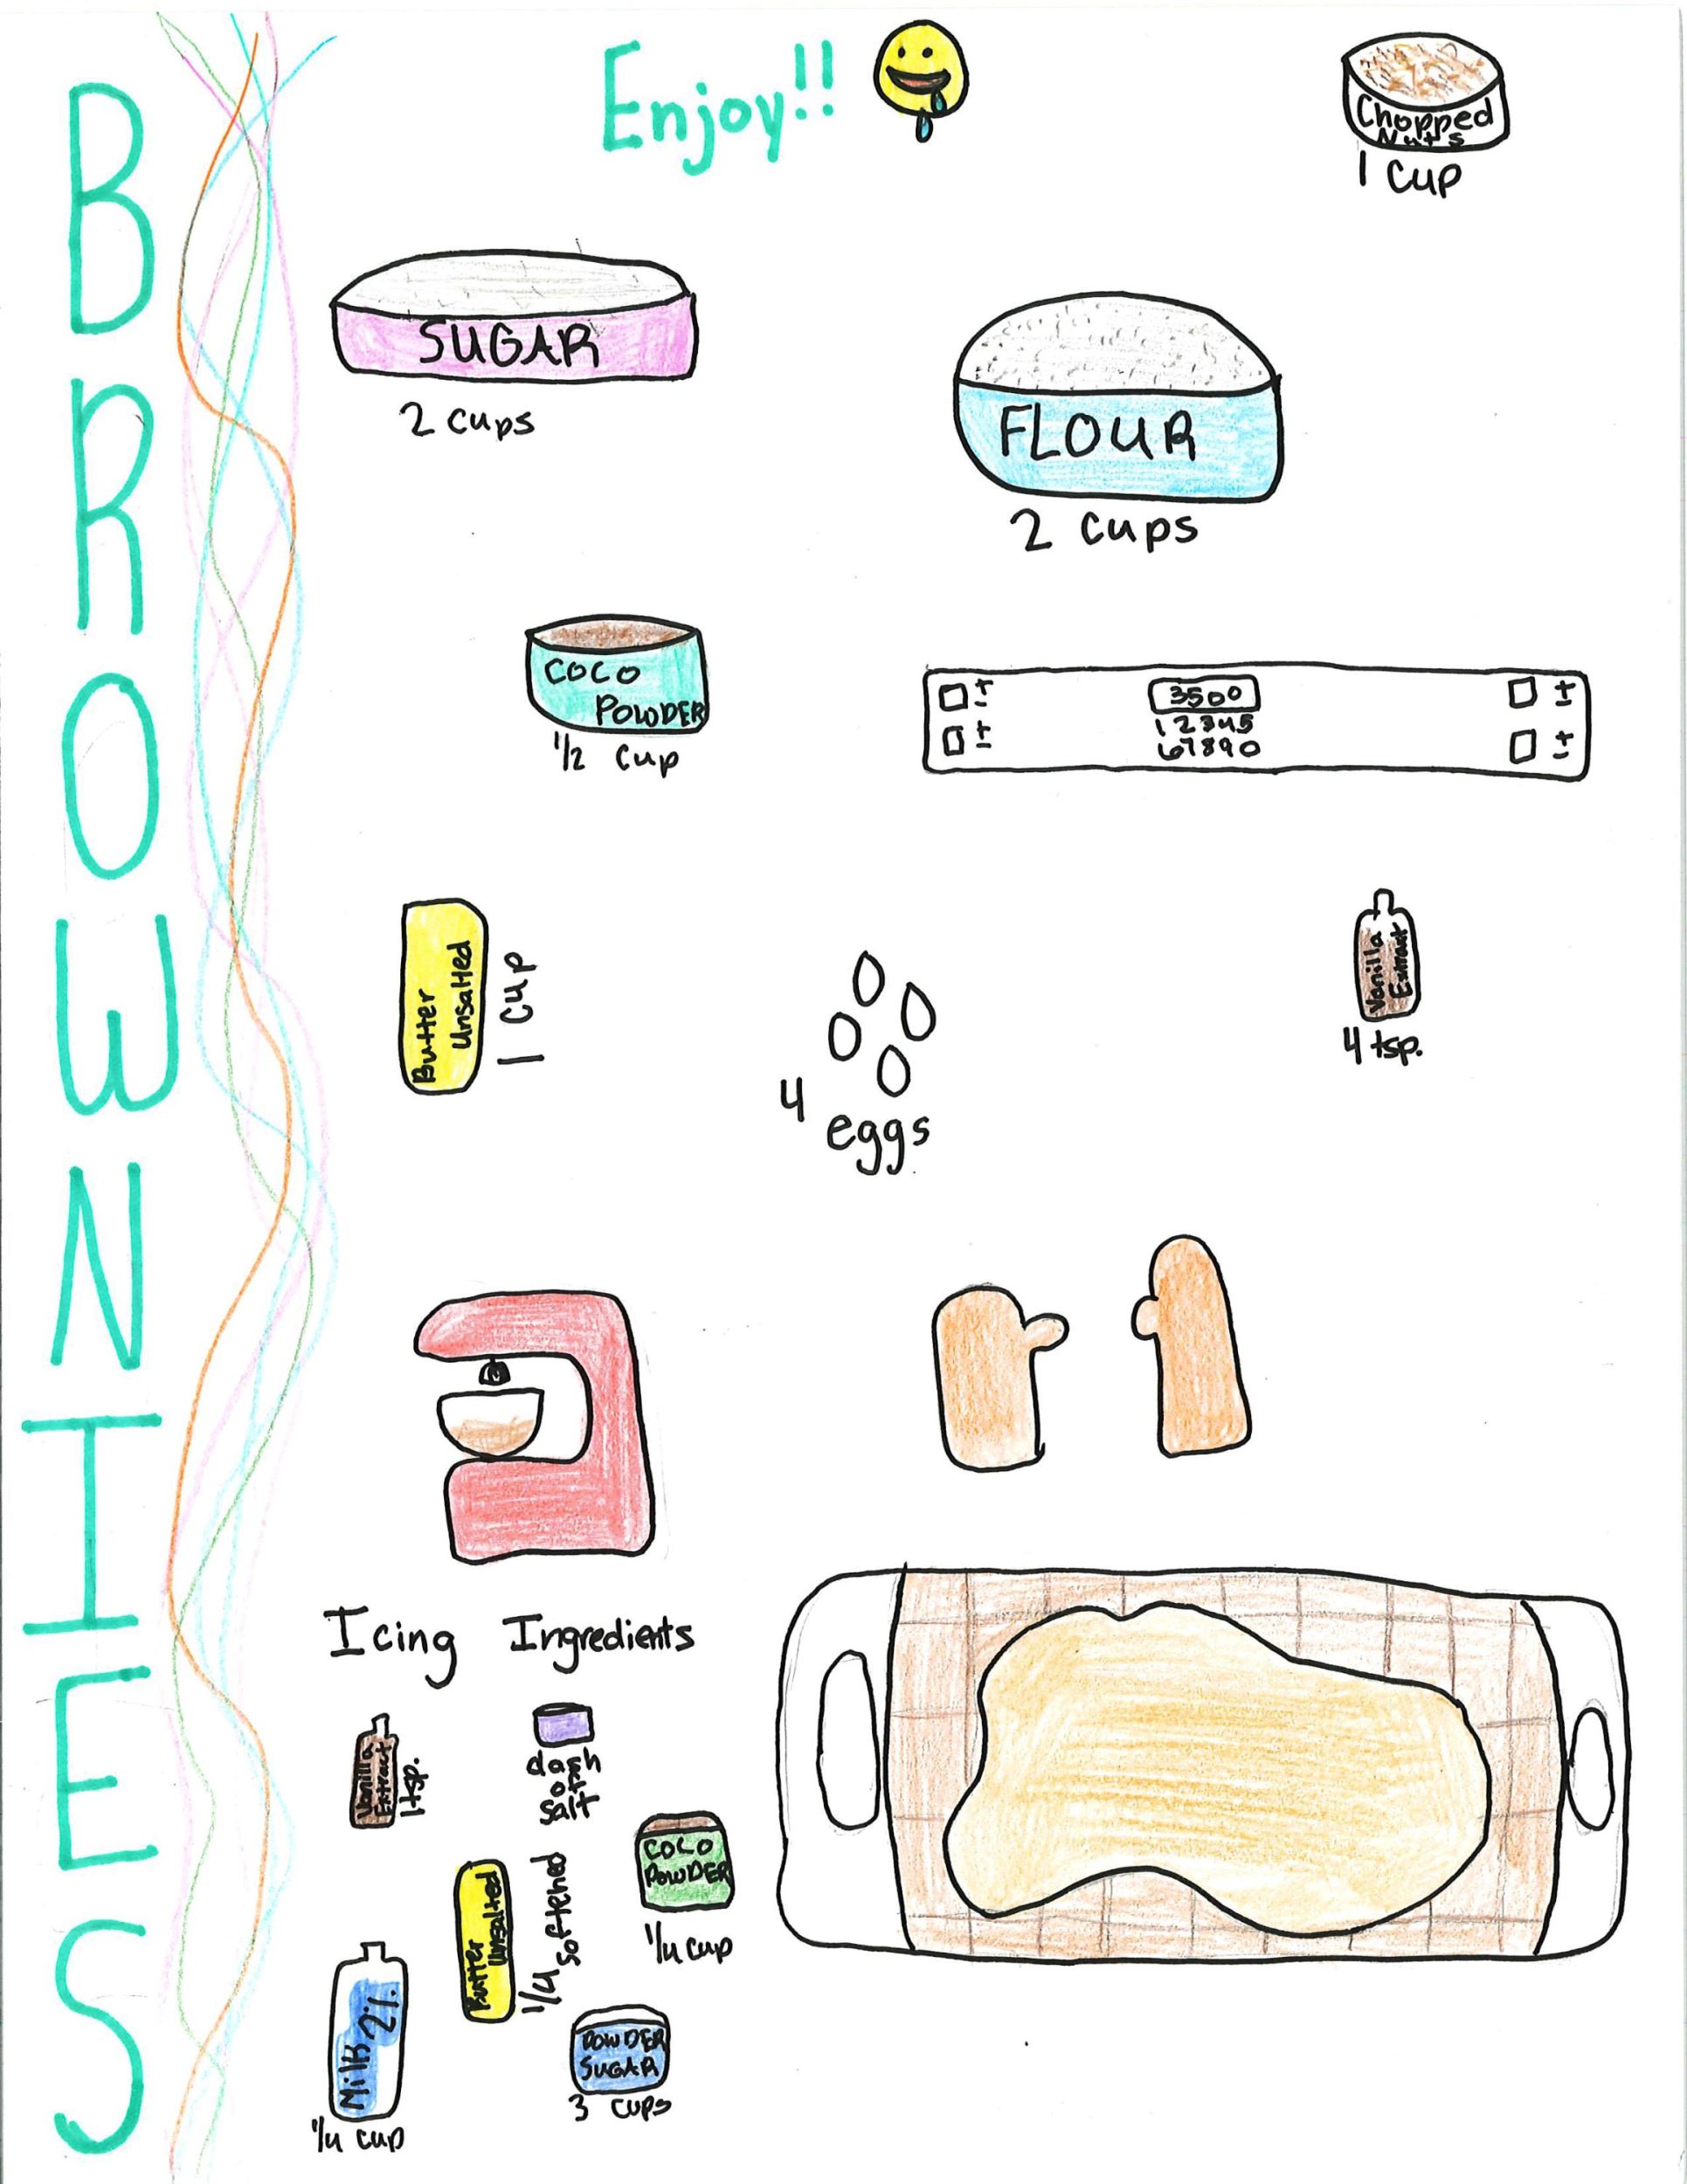 BROWNIES
Enjoy!!
Chopped
Nuts
1 cup
SUGAR
2 cups
FLOUR
2 cups
COCO
POWDER
1/2 cup
350°
+
-
+
-
+
-
+
-
12345
67890
Butter
Unsalted
1 cup
4
eggs
Vanilla
Extract
4 tsp.
Icing Ingredients
Vanilla
Extract
1 tsp.
dash
of
salt
COCO
POWDER
1/4 cup
Butter
Unsalted
1/4 softened
Milk 2%
1/4 cup
POWDER
SUGAR
3 cups